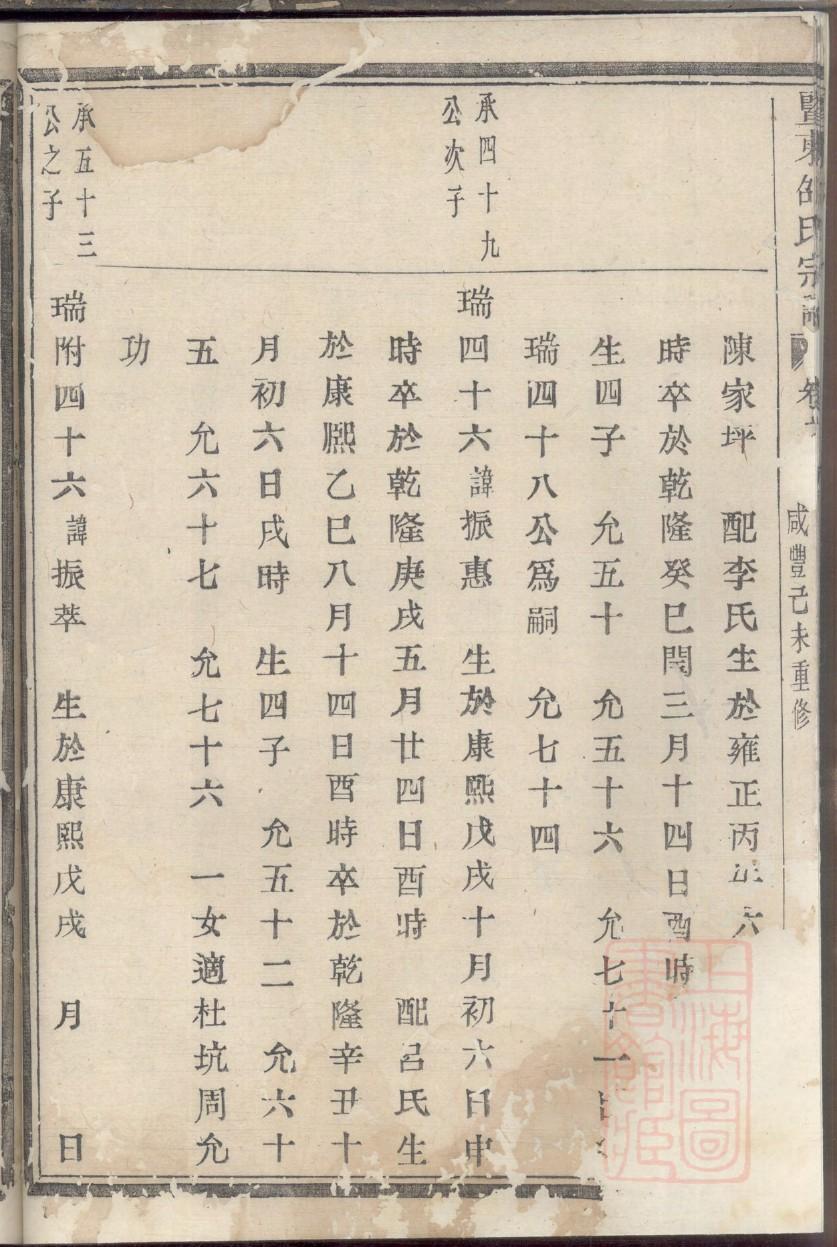 暨東邵氏宗譜 卷
咸豐己未重修
陳家坪 配李氏生於雍正丙午六
時卒於乾隆癸巳閏三月十四日酉時
生四子 允五十 允五十六 允七十一
瑞四十八公爲嗣 允七十四
承四十九
公次子
瑞四十六諱振惠 生於康熙戊戌十月初六日申
時卒於乾隆庚戌五月廿四日酉時 配呂氏生
於康熙乙巳八月十四日酉時卒於乾隆辛丑十
月初六日戌時 生四子 允五十二 允六十
五 允六十七 允七十六 一女適杜坑周允
功
承五十三
公之子
瑞附四十六諱振萃 生於康熙戊戌 月 日
上海圖
書館藏